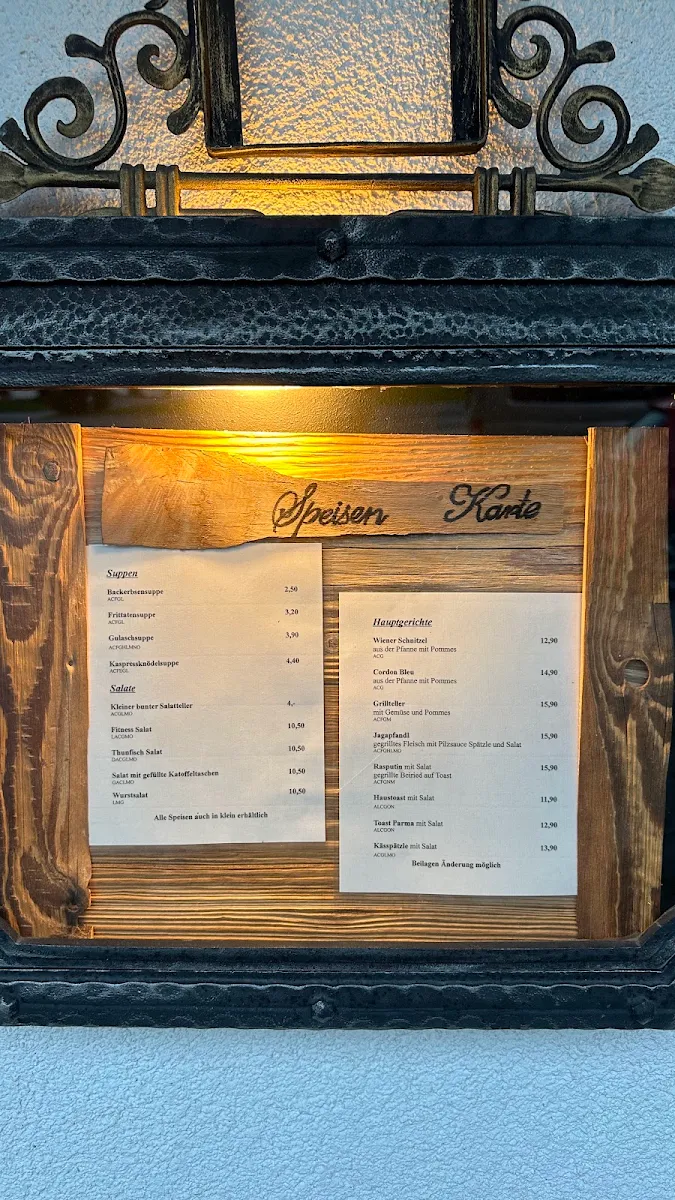 Speisen Karte
Suppen
Backerbsensuppe 2,50
ACFGL
Frittatensuppe 3,20
ACFGL
Gulaschsuppe 3,90
ACFGHLMNO
Kaspressknödelsuppe 4,40
ACFEGL
Salate
Kleiner bunter Salatteller 4,-
ACGLMO
Fitness Salat 10,50
LACGMO
Thunfisch Salat 10,50
DACGLMO
Salat mit gefüllte Katoffeltaschen 10,50
GACLMO
Wurstsalat 10,50
LMG
Alle Speisen auch in klein erhältlich
Hauptgerichte
Wiener Schnitzel 12,90
aus der Pfanne mit Pommes
ACG
Cordon Bleu 14,90
aus der Pfanne mit Pommes
ACG
Grillteller 15,90
mit Gemüse und Pommes
ACFGM
Jagapfandl 15,90
gegrilltes Fleisch mit Pilzsauce Spätzle und Salat
ACFGHLMO
Rasputin mit Salat 15,90
gegrillte Beiried auf Toast
ACFGHM
Haustoast mit Salat 11,90
ALCGON
Toast Parma mit Salat 12,90
ALCGON
Kässpätzle mit Salat 13,90
ACGLMO
Beilagen Änderung möglich